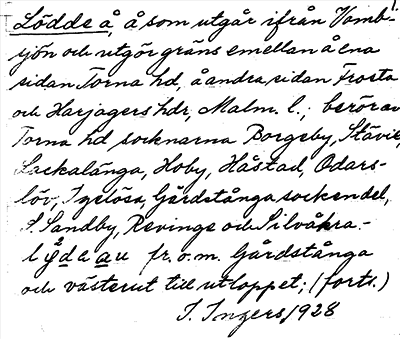 Lödde å, å som utgår ifrån Vomb-
sjön och utgör gräns emellan å ena
sidan Torna hd, å andra sidan Frosta
och Harjagers hdr, Malm. l.; berör av
Torna hd socknarna Borgeby, Stävie,
Lackalänga, Hoby, Håstad, Odars-
löv, Igelösa, Gårdstånga sockendel,
S. Sandby, Revinge och Silvåkra. -
fr. o. m. Gårdstånga
och västerut till utloppet; (forts.)
I. Ingers 1928